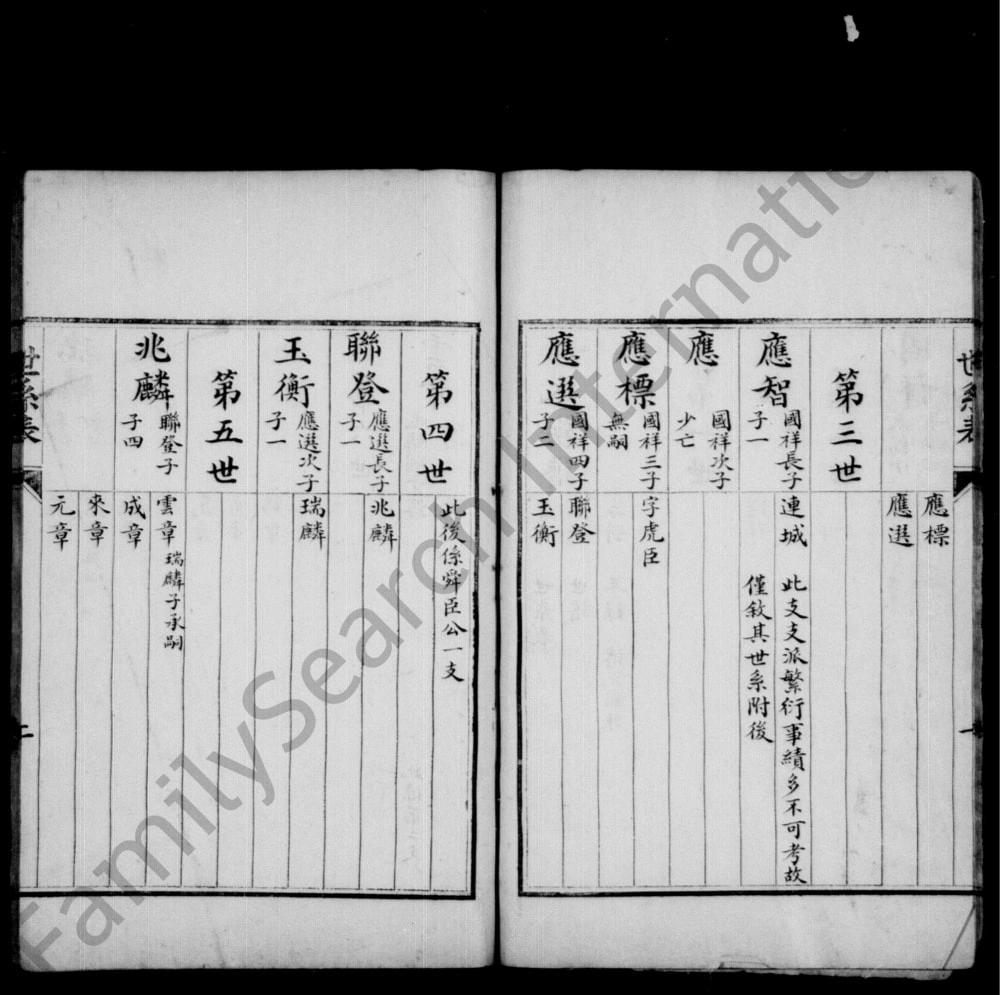 世系表
一
應標
應選
第三世
應智
國祥長子
子一
連城
此支支派繁衍事績多不可考故
僅敘其世系附後
應
國祥次子
少亡
應標
國祥三子
無嗣
字虎臣
應選
國祥四子
子二
聯登
玉衡
第四世
此後係舜臣公一支
聯登
應選長子
子一
兆麟
玉衡
應選次子
子一
瑞麟
第五世
兆麟
聯登子
子四
雲章 瑞麟子承嗣
成章
來章
元章
世系表
二
FamilySearch International